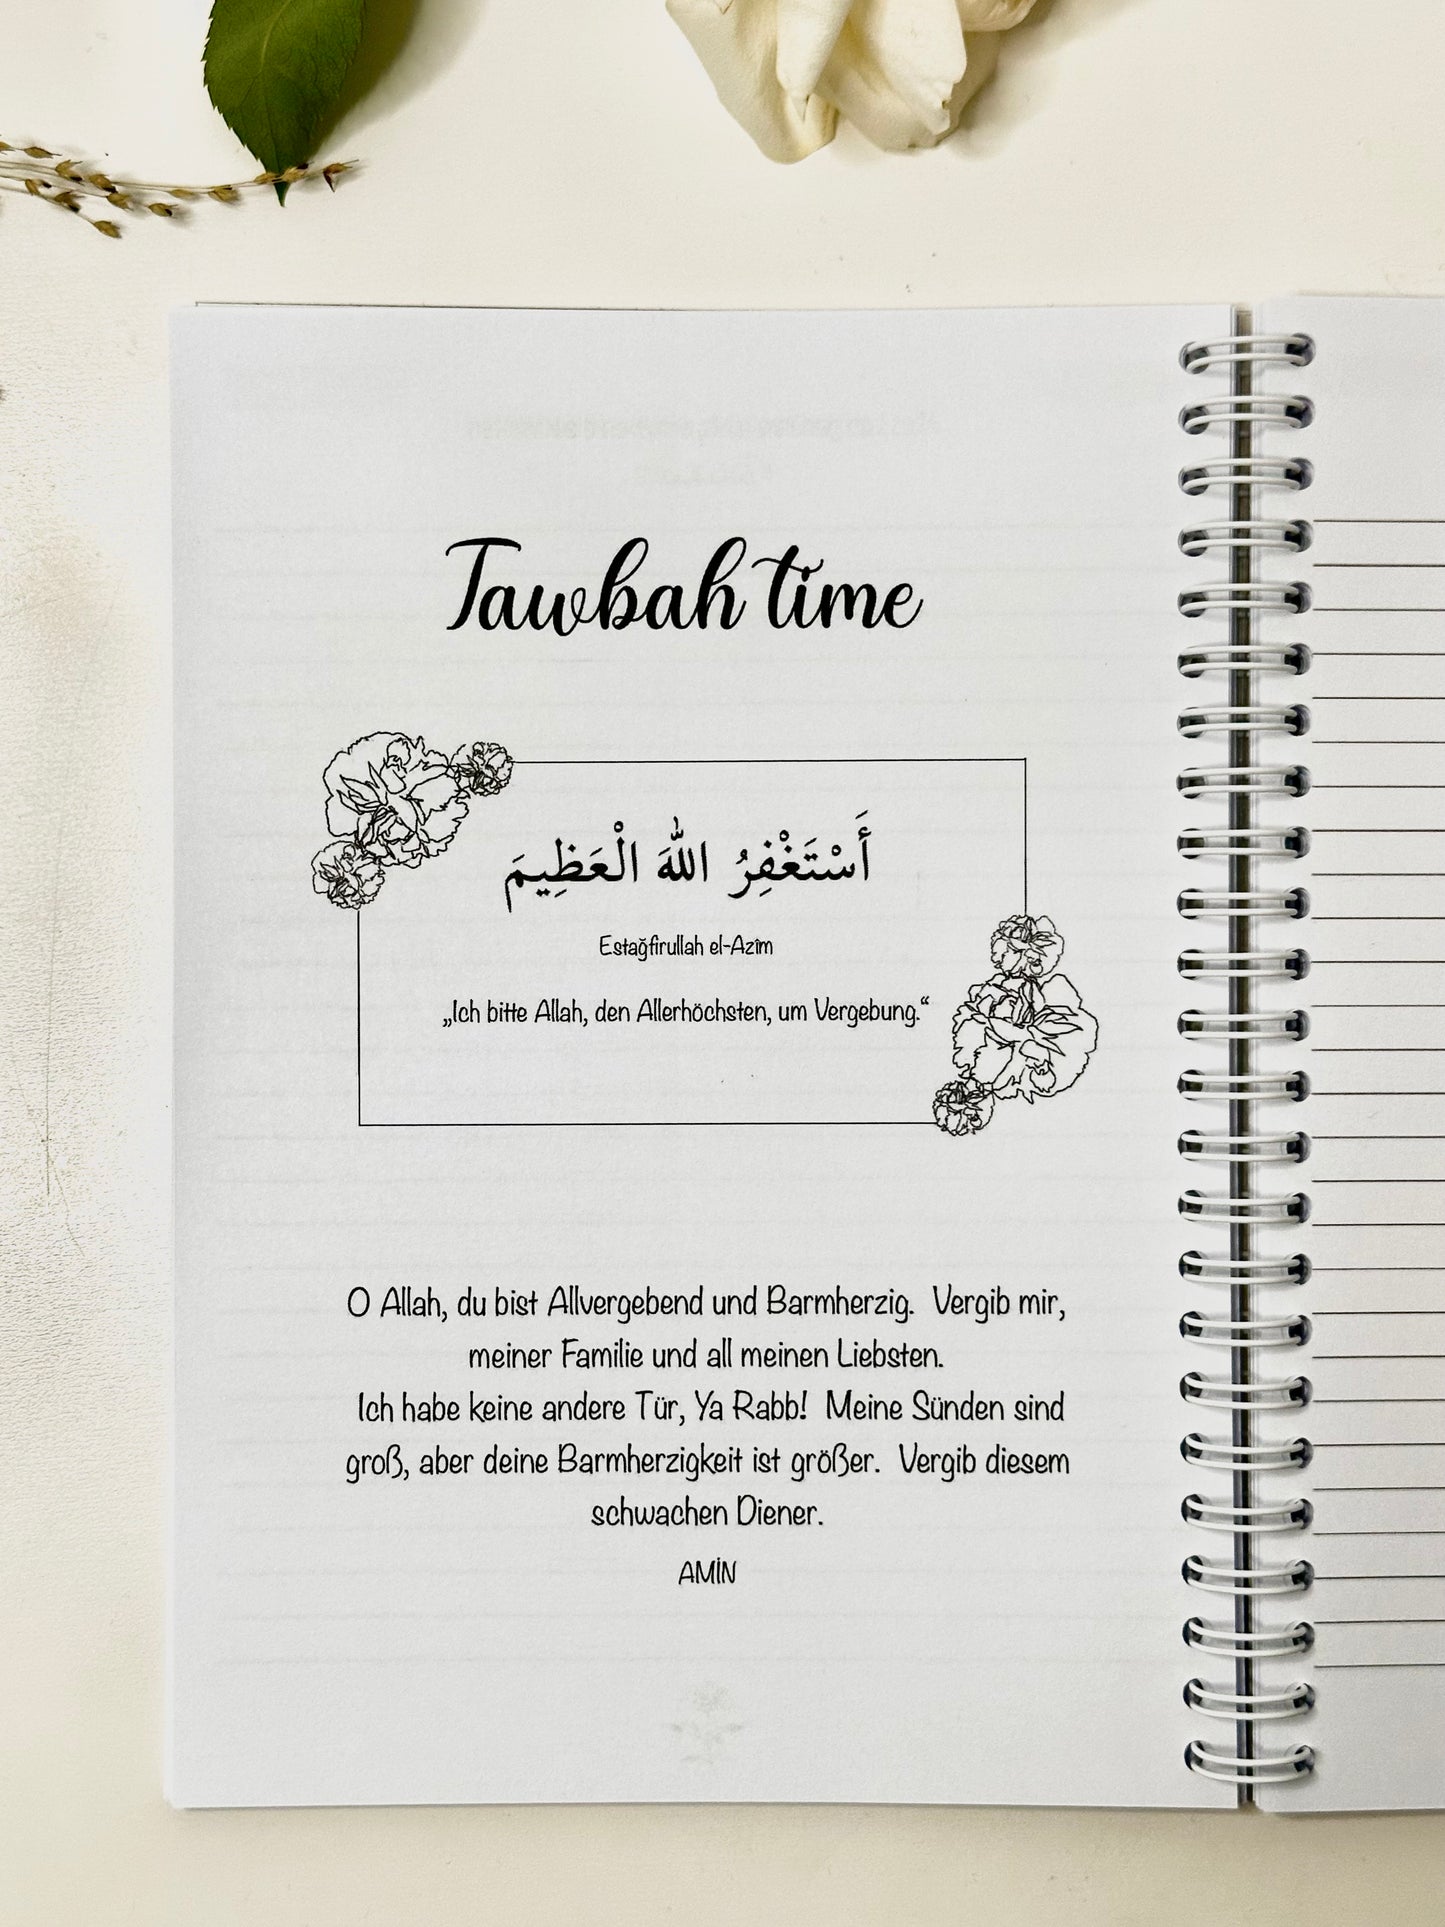 Tawbah time
أَسْتَغْفِرُ اللهَ الْعَظِيمَ
Estağfirullah el-Azîm
„Ich bitte Allah, den Allerhöchsten, um Vergebung.“
O Allah, du bist Allvergebend und Barmherzig. Vergib mir,
meiner Familie und all meinen Liebsten.
Ich habe keine andere Tür, Ya Rabb! Meine Sünden sind
groß, aber deine Barmherzigkeit ist größer. Vergib diesem
schwachen Diener.
AMİN